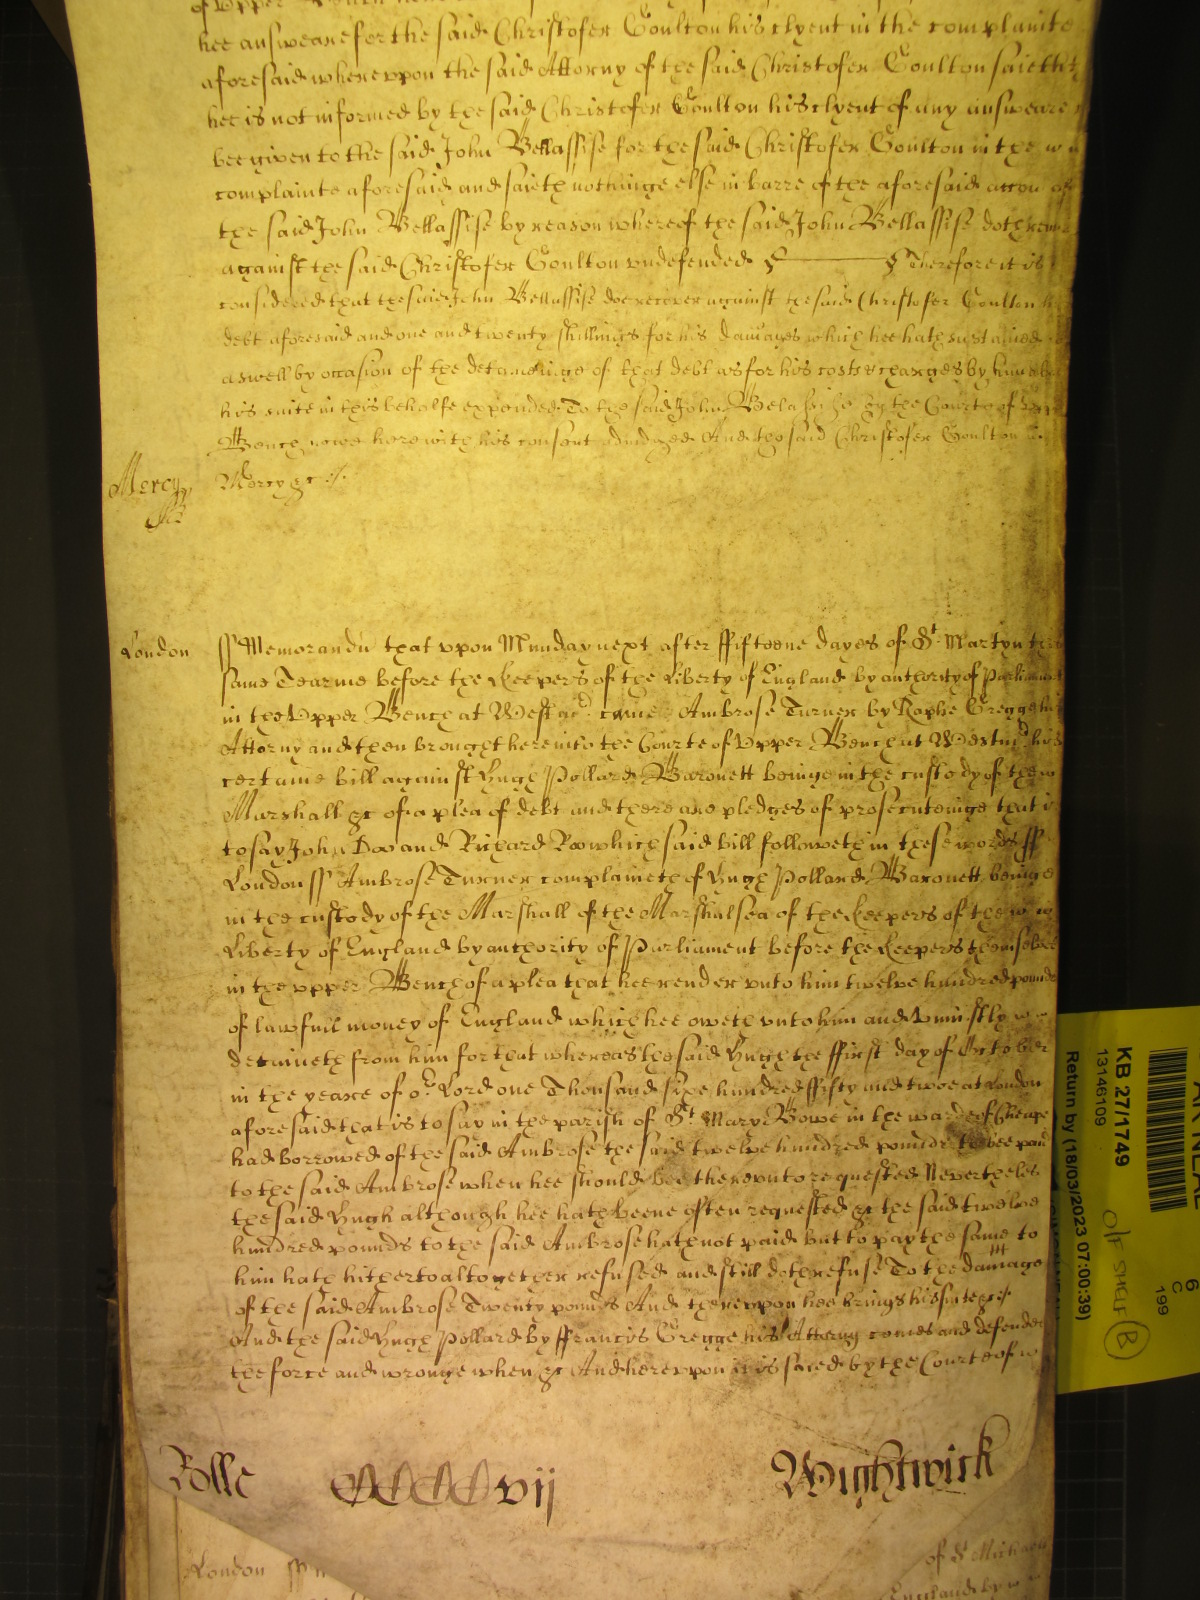 of Upper Bench
hee answeare for the said Christofer Coulton his clyent in the complainte
aforesaid wherevppon the said Attorny of the said Christofer Coulton saieth
hee is not informed by the said Christofer Coulton his clyent of any answeare
bee given to the said John Bellassise for the said Christofer Coulton in the
complainte aforesaid and saieth nothinge else in barre of the aforesaid accon of
the said John Bellassise by reason whereof the said John Bellassise doth
against the said Christofer Coulton vndefended Therefore it is
considered that the said John Bellassise doe recover against the said Christofer Coulton
debt aforesaid and one and twenty shillings for his damages which hee hath sustained
aswell by occasion of the deteininge of that debt as for his costs & charges by him about
his suite in this behalfe expended To the said John Belassise by the Courte of Upper
Bench nowe here with his consent adiudged And the said Christofer Coulton in
Mercy
Mercy &c ./.
London ss Memorandu that vpon Munday next after ffifteene dayes of St. Martyn this
same Tearme before the Keepers of the Liberty of England by authority of Parliament
in the Upper Bench at Westmr. came Ambrose Turner by Raphe Gregge his
Attorny and then brought here into the Courte of Upper Bench at Westmr his
certaine bill against Hugh Pollard Baronett beinge in the custody of the
Marshall &c of a plea of debt and there are pledges of prosecuteinge that is
to say John Doo and Richard Roo which said bill followeth in these words ss
London ss Ambrose Turner complaineth of Hugh Pollard Baronett beinge
in the custody of the Marshall of the Marshalsea of the Keepers of the
Liberty of England by authority of Parliament before the Keepers themselves
in the vpper Bench of a plea that hee render vnto him twelve hundred pounds
of lawfull money of England which hee oweth vnto him and vniustly
detaineth from him for that whereas the said Hugh the ffirst day of October
in the yeare of or. Lord one Thousand sixe hundred ffifty and twoe at London
aforesaid that is to say in the parish of St. Mary Bowe in the warde of Cheape
had borrowed of the said Ambrose the said twelve hundred pounds to bee paid
to the said Ambrose when hee should bee therevnto requested Neverthelesse
the said Hugh although hee hath beene often requested &c the said twelve
hundred pounds to the said Ambrose hath not paid but to pay the same to
him hath hitherto altogether refused and still doth refuse To the damage
of the said Ambrose Twenty pounds And therevpon hee brings his suite &c.
And the said Hugh Pollard by ffrancis Gregge his Attorny comes and defendes
the force and wronge when &c And herevpon it is saied by the Courte of
Rolle CCCCvij Wightwick
London ss
of St Michaell
England by
KB 27/1749
13146109
Return by (18/03/2023 07:00:39)
6
C
199
B